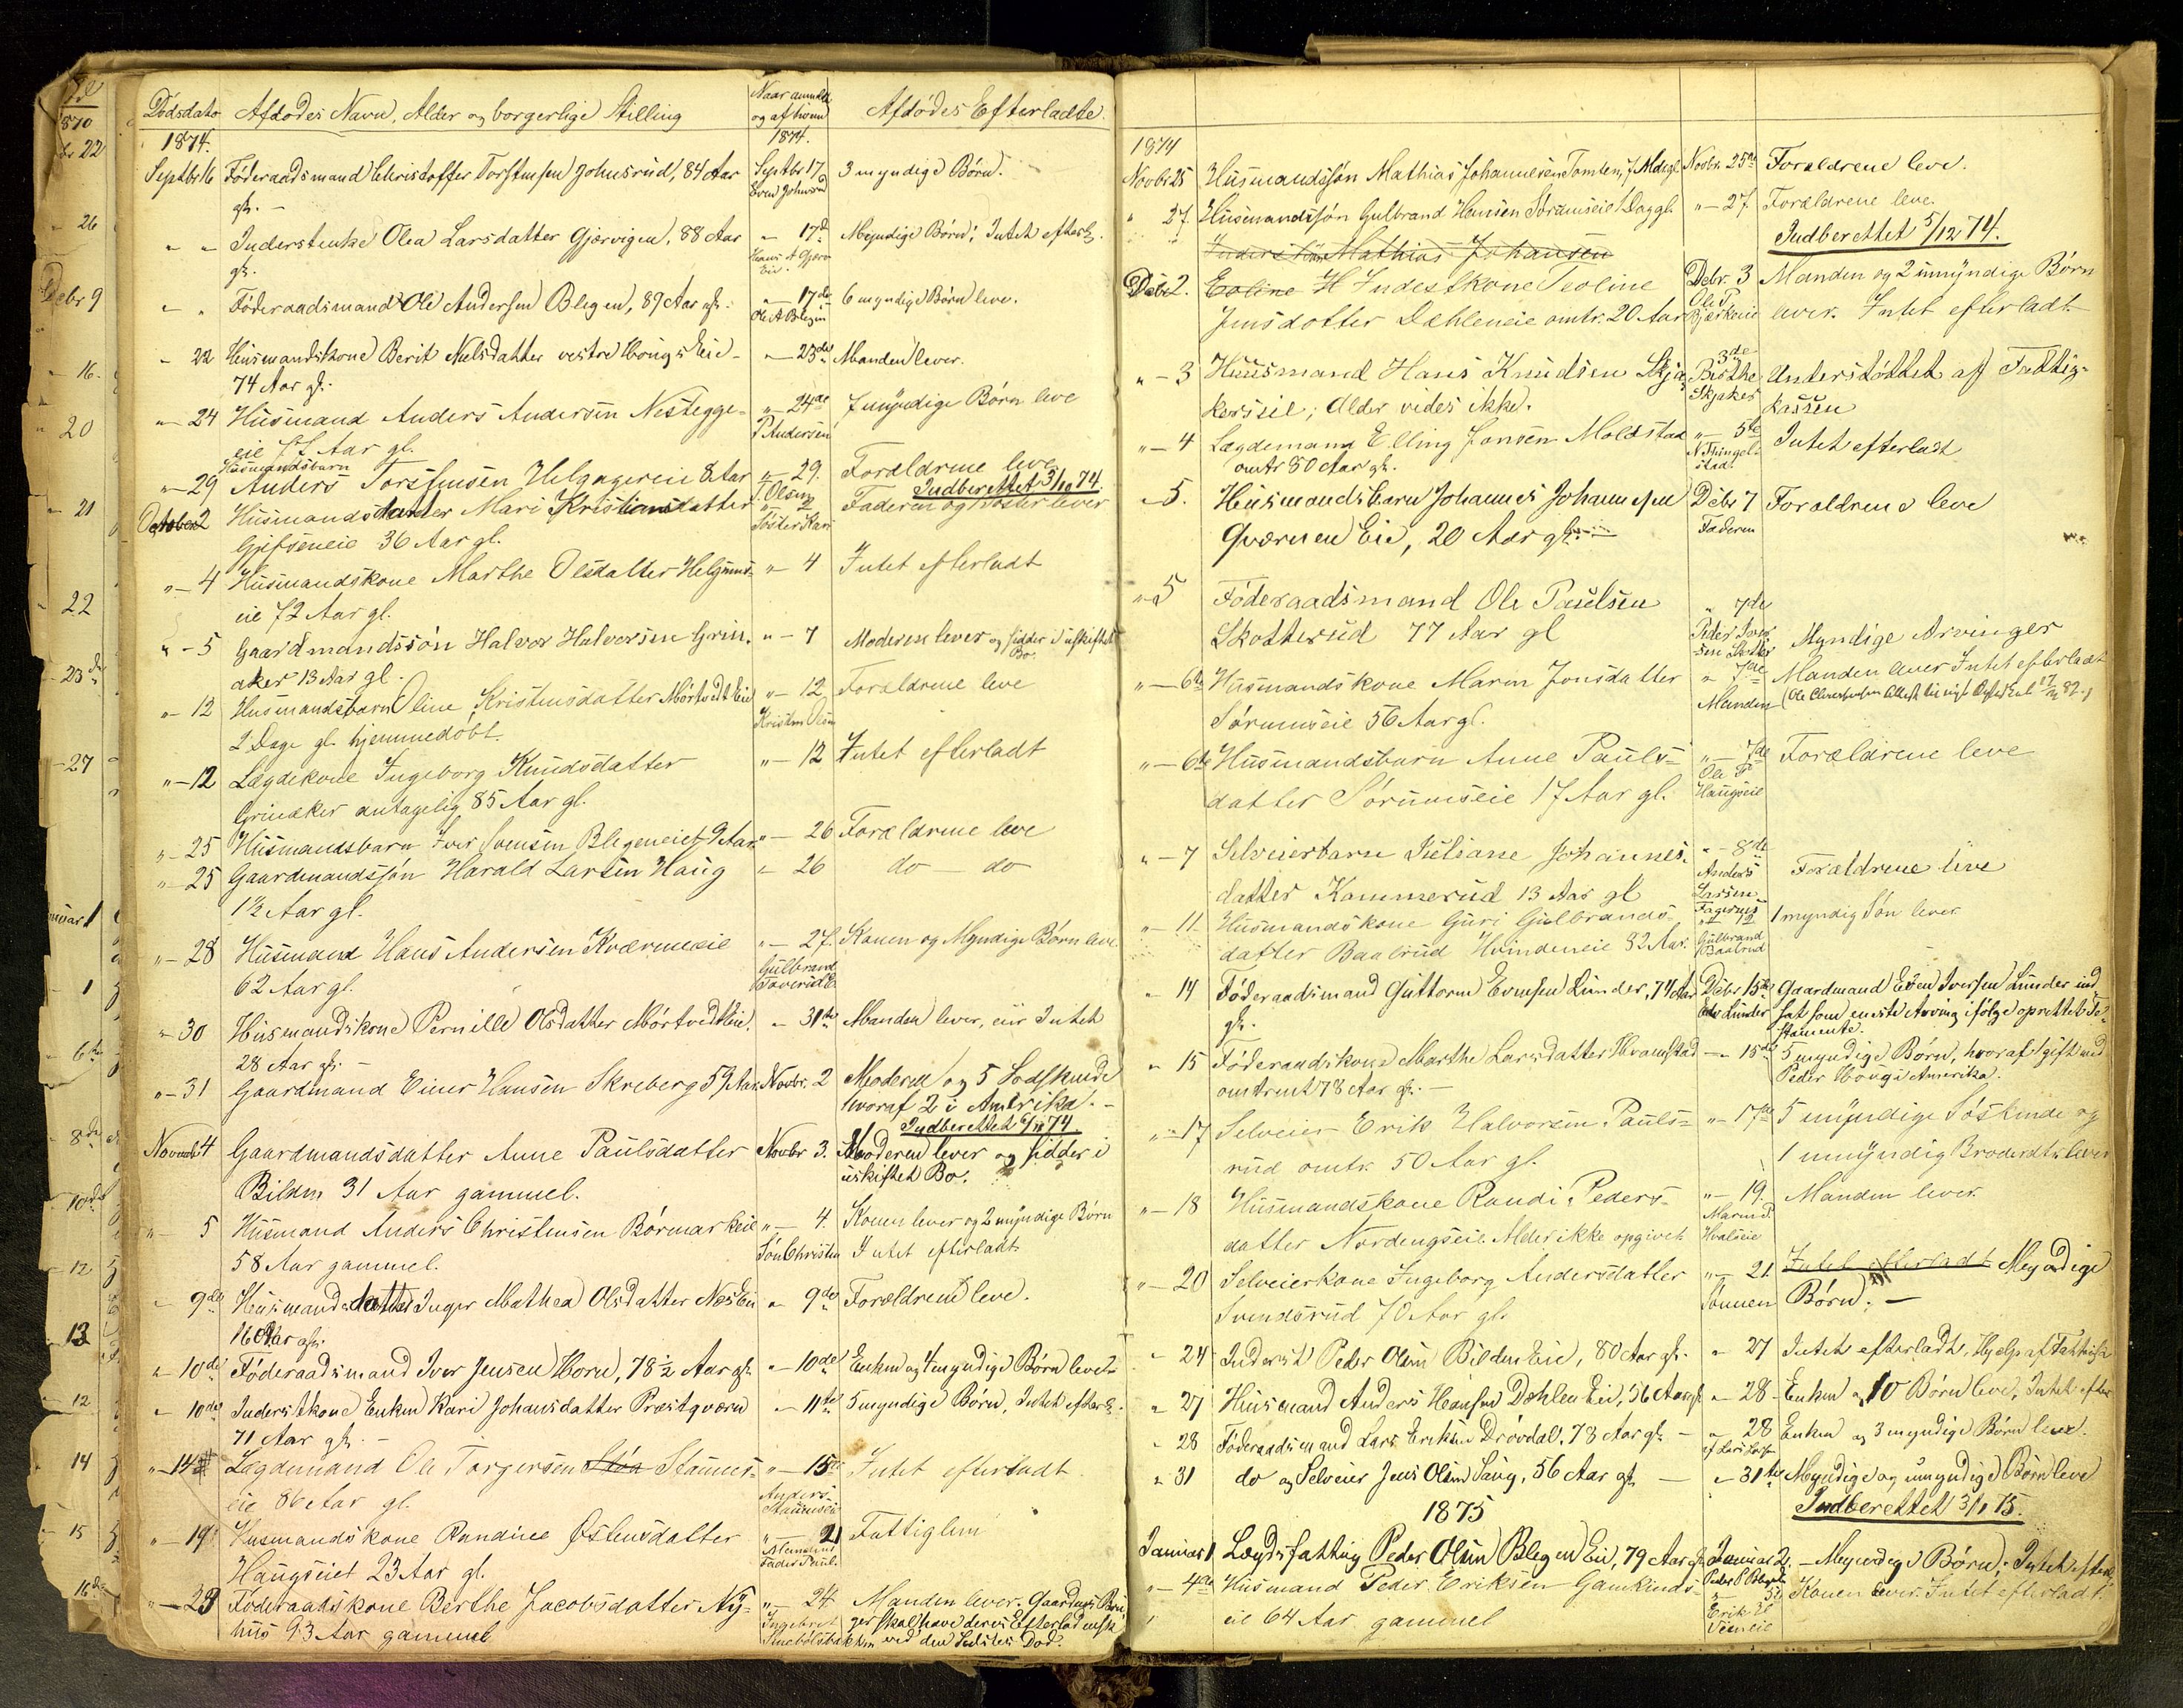 Dødsdato Afdødes Navn, Alder og borgerlige Stilling Naar anmeldt og af hvem Afdødes Efterladte
1874. 1874.
Septbr 16 Føderaadsmand Christoffer Torstensen Johnsrud, 84 Aar Septbr 17 3 myndige Børn.
gl. — Even Johnsrud
" " Inderstenke Olea Larsdatter Gjørvigen, 88 Aar " 17de Myndige Børn; Intet efterl.
gl. Hans A Gjørv Eie.
" " Føderaadsmand Ole Andersen Blegen, 89 Aar gl. " 17de 6 myndige Børn leve.
Ole A Blegen
" 22 Husmandskone Berit Nielsdatter vestre Hougs Eie — 23de Manden lever.
74 Aar gl.
" 24 Husmand Anders Andersen Nestegge- " 24de 7 myndige Børn leve
eie 77 Aar gl. P Andersen
Husmandsbarn
" 29 Anders Torstensen Helgagereie 8 Aar " 29. Forældrene leve
T. Olsen Indberettet 3/10 74.
October 2 Husmandsdatter Mari Kristiansdatter " 2 Faderen og Søster lever
Gjefseneie 36 Aar gl. Søster Kari
" 4 Husmandskone Marthe Olsdatter Helgums- " 4 Intet efterladt
eie 72 Aar gl.
" 5 Gaardmandssøn Halvor Halvorsen Grin- " 7 Moderen lever og sidder i uskiftet Bo.
aker 13 Aar gl.
" 12 Husmandsbarn Oline Kristensdatter Mørtvedt Eie " 12 Forældrene leve
2 Dage gl. hjemmedøbt. Kristen Olsen
" 12 Lægdekone Ingeborg Knudsdatter " 12 Intet efterladt
Grinaker antagelig 85 Aar gl.
" 25 Husmandsbarn Iver Svensen Blegeneiet 9 Aar " 26 Forældrene leve
" 25 Gaardmandssøn Harald Larsen Haug " 26 do — do
1½ Aar gl.
" 28 Husmand Hans Andersen Kværneeie " 27. Konen og Myndige Børn leve.
62 Aar gl. Gulbrand
" 30 Husmandskone Pernille Olsdatter Mørtvedt Eie. " 31te Manden lever, eier Intet
28 Aar gl. —
" 31 Gaardmand Einer Hansen Skreberg 59 Aar Novbr. 2 Moderen og 5 Sødskende
hvoraf 2 i Amerika. —
Indberettet 6/11 74
Novemb. 4 Gaardmandsdatter Anne Paulsdatter Novbr 3. Moderen lever og sidder i
Bilden 31 Aar gammel. uskiftet Bo.
" 5 Husmand Anders Christensen Børmarkeie " 4. Konen lever og 2 myndige Børn
58 Aar gammel. Søn Christen Intet efterladt
" 9de Husmandsdatter Inger Mathea Olsdatter Næs Eie " 9de Forældrene leve.
16 Aar gl.
" 10de Føderaadsmand Iver Jensen Horn, 78½ Aar gl. " 10de Enken og 4 myndige Børn leve
" 10de Inderstkone Enken Kari Johansdatter Præstqværn " 11te 5 myndige Børn, Intet efterl.
71 Aar gl. —
" 14 Lægdemand Ole Torgersen Støa Staunes- " 15de Intet efterladt
eie 86 Aar gl. Anders Staunseie
" 19 Husmandskone Randine Østensdatter " 21 Fattiglem
Haugseiet 23 Aar gl. Fader Paul.
" 23 Føderaadskone Berthe Jacobsdatter Ny- " 24 Manden lever. Gaardens Bru-
hus 93 Aar gammel Ingebret ger skal have deres Efterladensk.
ved den Sidstes Død.
1874
Novbr 25 Husmandssøn Mathias Johannesen Tomten, 7 Mdr gl. Novbr. 25de Forældrene leve.
" 27. Husmandssøn Gulbrand Hansen Sørumseie 1 Dag gl. " 27 Forældrene leve.
Indberettet 5/12 74.
Inderst Mathias Johansen
Debr 2. Eoline H Inderstkone Teoline Debr. 3 Manden og 2 umyndige Børn
Jensdatter Dæhleneie omtr. 20 Aar Ole P. lever. Intet efterladt
" 3 Husmand Hans Knudsen Skja- 3de Understøttet af Fattig-
kerseie; Alder vides ikke. Berthe Skjaker kassen
" 4 Lægdemand Elling Jonsen Moldstad " 5te Intet efterladt
omtr 80 Aar gl. N Thingelstad.
" 5. Husmandsbarn Johannes Johannesen Debr 7 Forældrene leve
Qværnen Eie, 20 Aar gl. — Faderen
" 5 Føderaadsmand Ole Paulsen " 7de
Skotterud 77 Aar gl Peder Iversen Myndige Arvinger
" 6te Husmandskone Maren Jonsdatter " 7de Manden lever Intet efterladt
Sørumseie 56 Aar gl. Manden
" 6te Husmandsbarn Anne Pauls- " 7de Forældrene leve
datter Sørumseie 17 Aar gl. Ole P Haugseie
" 7 Selveierbarn Juliane Johannes- " 8de
datter Kammerud 13 Aar gl Anders Larsen Fagernes Forældrene leve
" 11 Husmandskone Guri Gulbrands- " 12 1 myndig Søn lever
datter Baalrud Hvindeneie 82 Aar. Gulbrand Baalrud
" 14 Føderaadsmand Guttorm Evensen Lunder, 74 Aar Debr 15de Gaardmand Even Iversen Lunder ind-
gl. Lunder sat som eneste Arving ifølge oprettet Te-
stamente.
" 15 Føderaadskone Marthe Larsdatter Hvamstad — 15de 5 myndige Børn, hvoraf 1 gift med
omtrent 78 Aar gl. — Peder Houg i Amerika.
" 17 Selveier Erik Halvorsen Pauls- " 17de 5 myndige Søskende og
rud omtr. 50 Aar gl. 1 umyndig Broderdtr. lever
" 18 Husmandskone Randi Peders- " 19. Manden lever.
datter Nordengseie. Alder ikke opgivet Maren P. Hvalseie
" 20 Selveierkone Ingeborg Andersdatter " 21 Intet efterladt Myndige
Svendsrud 70 Aar gl. Sønnen Børn; —
" 24 Inderst Peder Olsen Bilden Eie, 80 Aar gl. " 27 Intet efterladt. Hjelp af Fattigk.
" 27 Husmand Anders Hansen Dæhlen Eie, 56 Aar gl " 28 Enken og 10 Børn leve, Intet efter
" 28 Føderaadsmand Lars Eriksen Drøvdal, 78 Aar gl — " 28 Enken og 3 myndige Børn leve.
" 31 do og Selveier Jens Olsen Saug, 56 Aar gl. — " 31te Myndige og umyndige Børn leve
1875 Indberettet 3/1 75.
Januar 1 Lægdsfattig Peder Olsen Blegen Eie, 79 Aar gl Januar 2. — Myndige Børn; Intet efterl.
" 4de Husmand Peder Eriksen Gamkinds- " 5te Konen lever. Intet efterladt.
eie 64 Aar gammel Erik